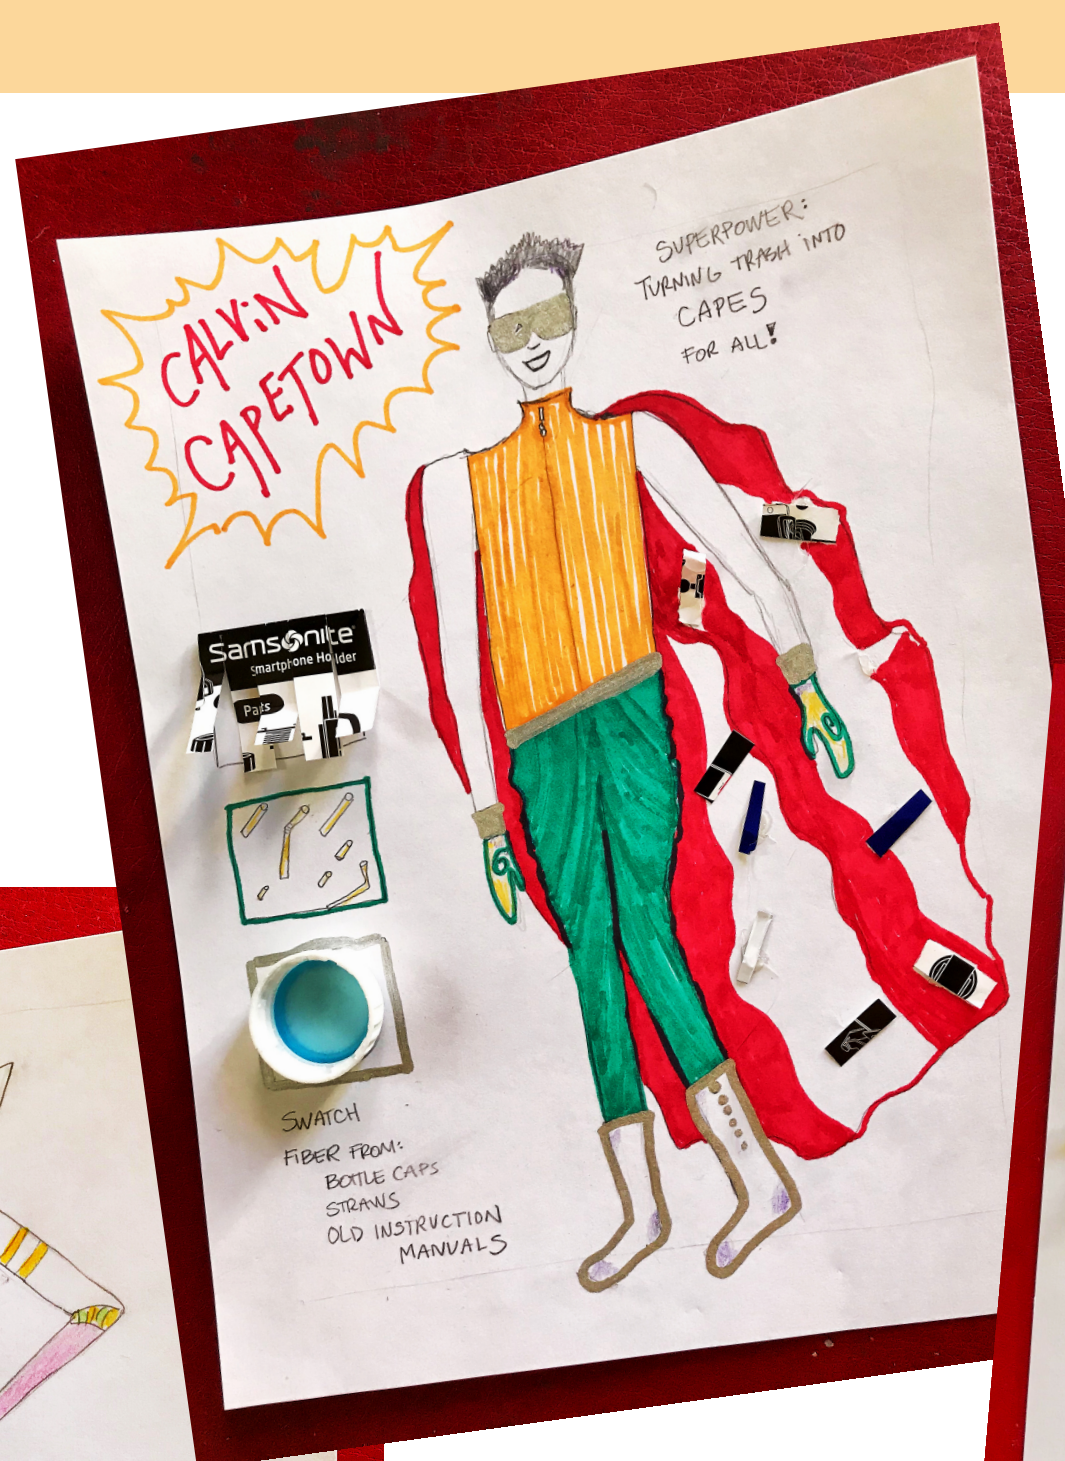 CALViN
CAPETOWN
SUPERPOWER:
TURNING TRASH iNTO
CAPES
FOR ALL!
Samsonite
Smartphone Holder
Parts
SWATCH
FiBER FROM:
BOTTLE CAPS
STRAWS
OLD INSTRUCTION
MANUALS